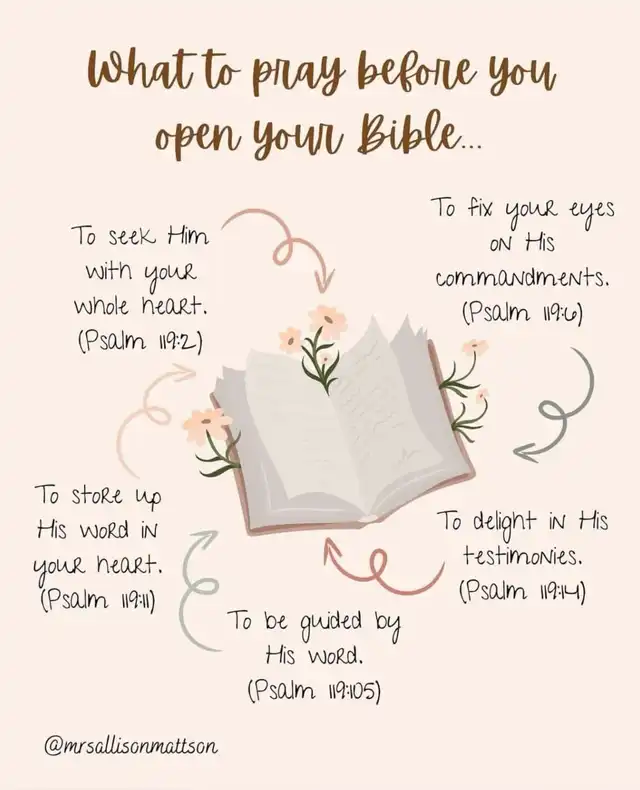 What to pray before you
open your Bible...
To seek Him
with your
whole heart.
(Psalm 119:2)
To fix your eyes
on His
commandments.
(Psalm 119:6)
To store up
His word in
your heart.
(Psalm 119:11)
To delight in His
testimonies.
(Psalm 119:14)
To be guided by
His word.
(Psalm 119:105)
@mrsallisonmattson